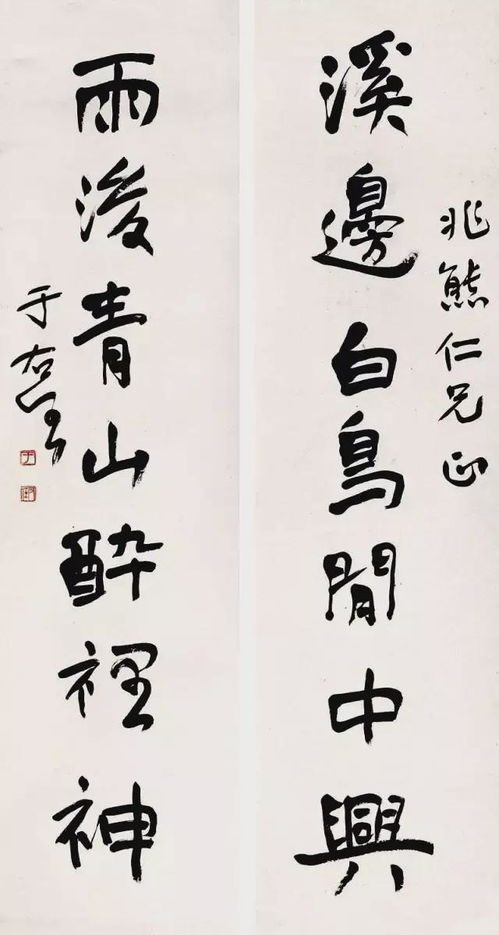 兆熊仁兄正
溪邊白鳥閒中興
雨後青山醉裡神
于右任